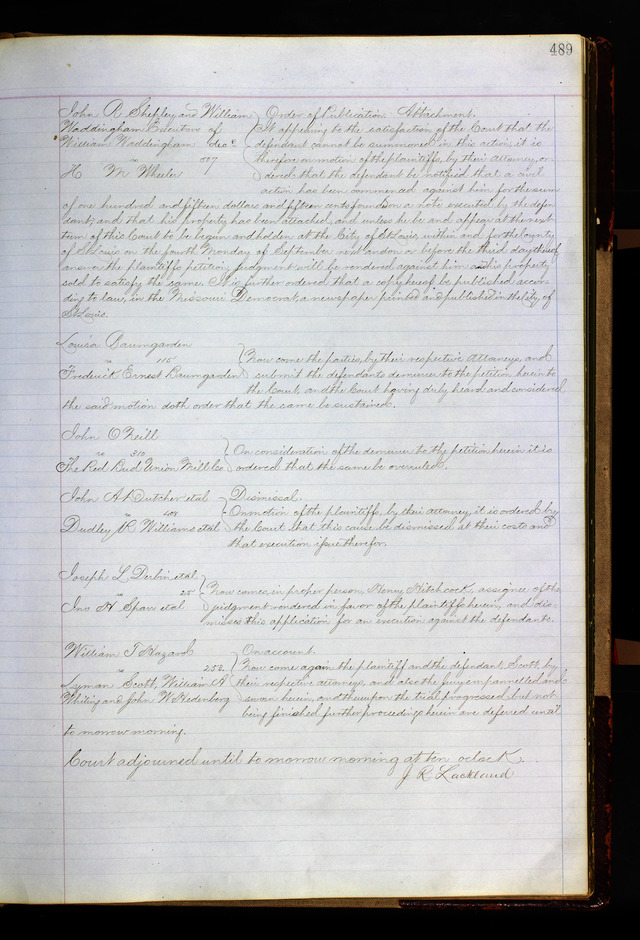 489
John R Shepley and William } Order of Publication Attachment.
Waddingham Executors of } It appearing to the satisfaction of the Court that the
William Waddingham decd } defendant cannot be summoned in this action, it is
vs 517 } therefore on motion of the plaintiffs, by their Attorney, or-
H M Wheeler } dered that the defendant be notified that a civil
action has been commenced against him for the sum
of one hundred and fifteen dollars and fifteen cents, founded on a note executed by the defen-
dant, and that his property has been attached, and unless he be and appear at the next
term of this Court to be begun and holden at the City of St Louis, within and for the County
of St Louis on the fourth Monday of September next and on or before the third day thereof
answer the plaintiffs petition, judgment will be rendered against him and his property
sold to satisfy the same. It is further ordered that a copy hereof be published accor-
ding to law, in the Missouri Democrat, a newspaper printed and published in the City of
St Louis.
Louisa Baumgarden
vs 115 } Now come the parties, by their respective Attorneys, and
Frederick Ernest Baumgarden } submit the defendants demurrer to the petition herein to
the Court, and the Court having duly heard and considered
the said motion doth order that the same be sustained.
John O'Neill
vs 310 } On consideration of the demurrer to the petition herein it is
The Red Bud Union Mill Co } ordered that the same be overruled.
John A Dutcher et al } Dismissal.
vs 401 } On motion of the plaintiffs, by their Attorney, it is ordered by
Dudley R Williams et al } the Court that this cause be dismissed at their costs and
that execution issue therefor.
Joseph L Durbin et al
vs 25 } Now comes, in proper person, Henry Hitchcock, assignee of the
Jno H Spaw et al } judgment rendered in favor of the plaintiffs herein, and dis-
misses this application for an execution against the defendants.
William T Hazard } On account.
vs 252 } Now come again the plaintiff and the defendant, Scott, by
Lyman Scott, William A } their respective attorneys, and also the jury empannelled and
Whiting and John W Hedenberg } sworn herein, and thereupon the trial progressed, but not
being finished further proceedings herein are deferred until
to morrow morning.
Court adjourned until to morrow morning at ten oclock.
J R Lackland